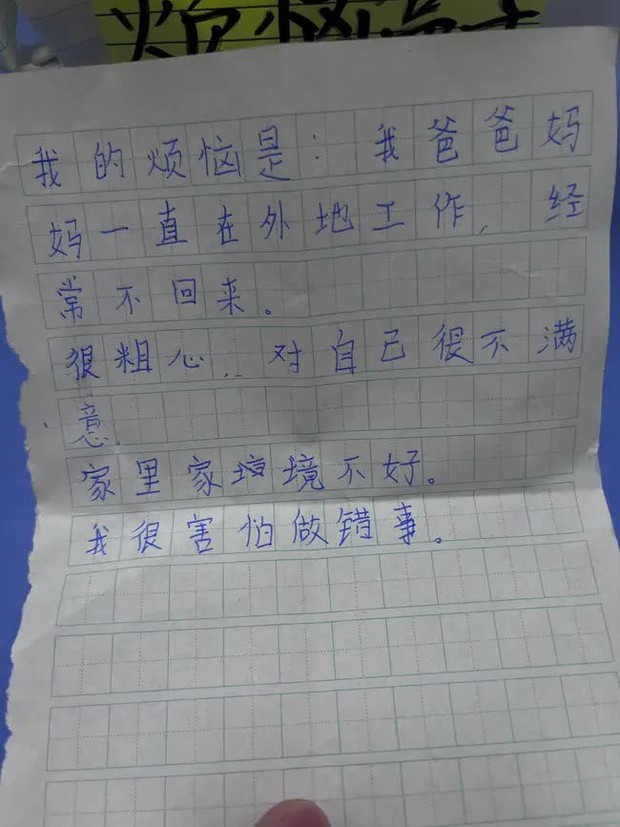 烦恼
我的烦恼是：我爸爸妈
妈一直在外地工作，经
常不回来。
很粗心..对自己很不满
意.
家里家境不好。
我很害怕做错事。